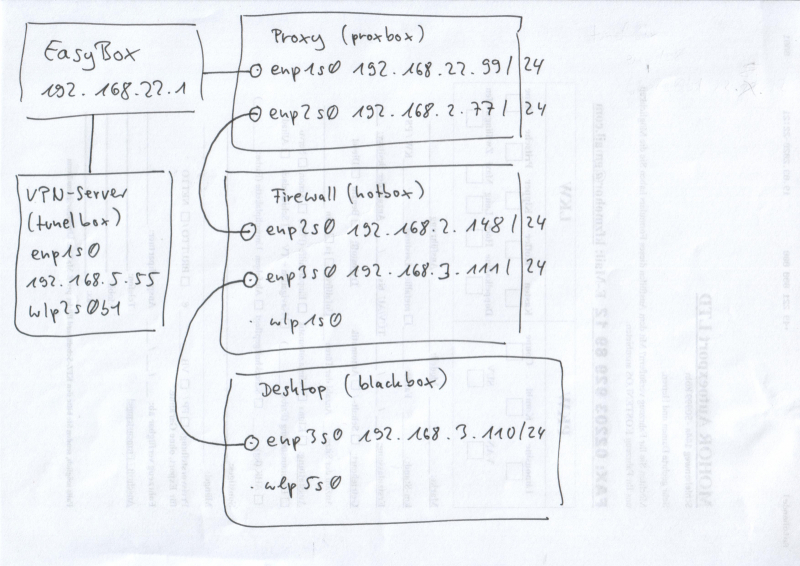 EasyBox
192.168.22.1
Proxy (proxbox)
enp1s0 192.168.22.99/24
enp2s0 192.168.2.77/24
VPN-Server
(tunelbox)
enp1s0
192.168.5.55
wlp2s0b1
Firewall (hotbox)
enp2s0 192.168.2.148/24
enp3s0 192.168.3.111/24
wlp1s0
Desktop (blackbox)
enp3s0 192.168.3.110/24
wlp5s0